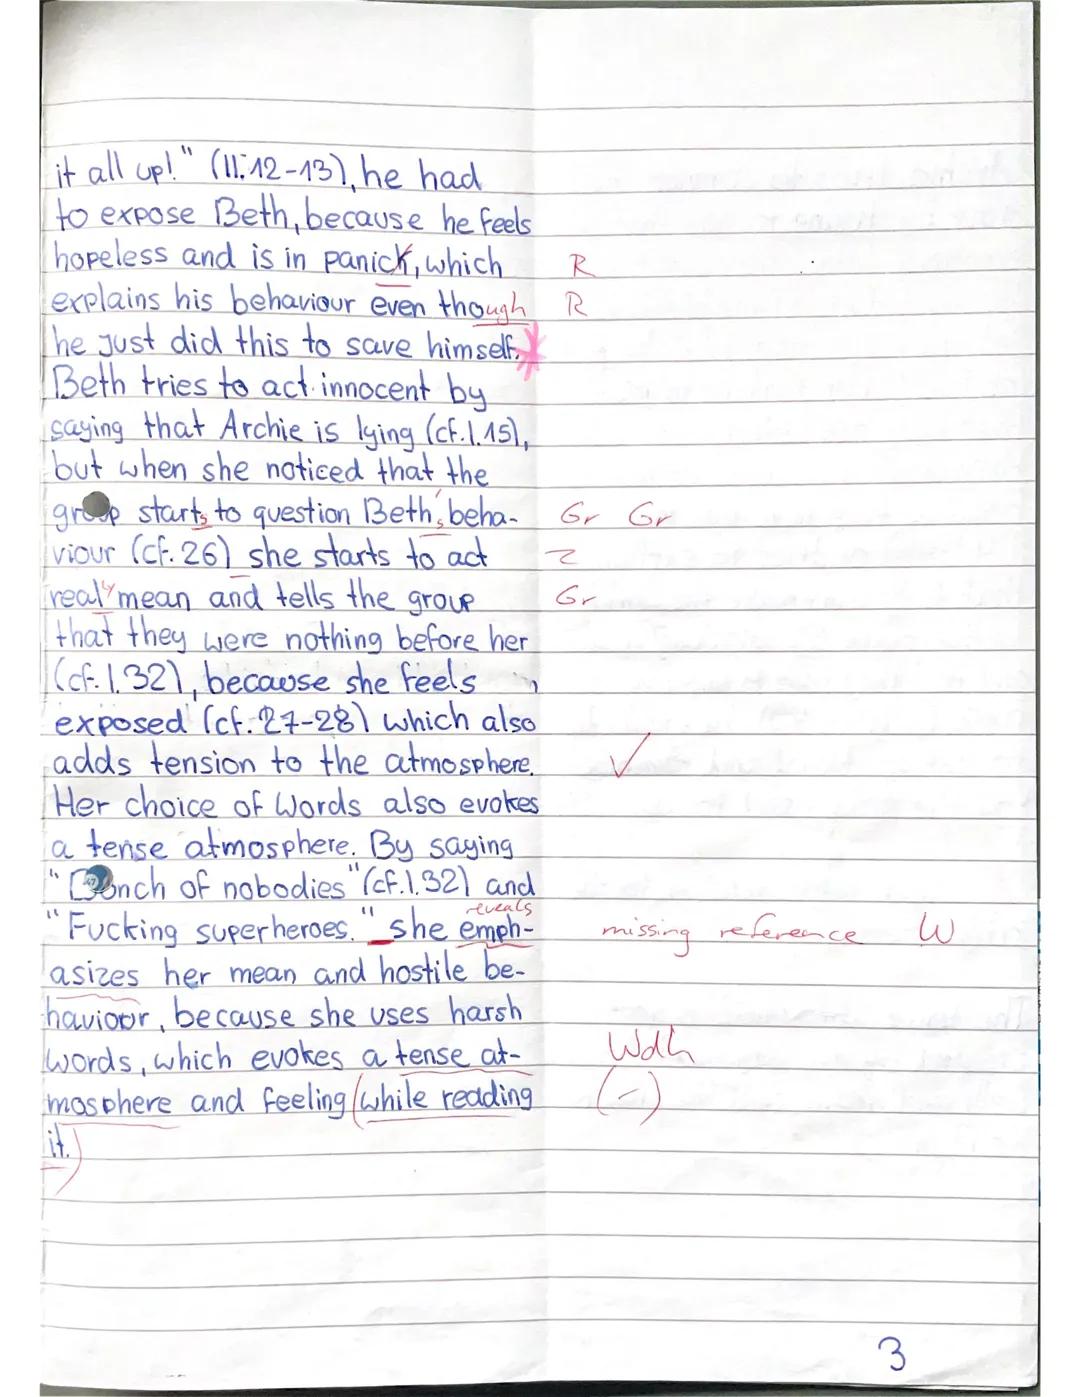 it all up!" (ll. 12-13), he had
to expose Beth, because he feels
hopeless and is in panick, which R
explains his behaviour even though R
he just did this to save himself.
Beth tries to act innocent by
saying that Archie is lying (cf. l. 15),
but when she noticed that the
group starts to question Beth's beha- Gr Gr
viour (cf. 26) she starts to act Z
really mean and tells the group Gr
that they were nothing before her
(cf. l. 32), because she feels
exposed (cf. 27-28) which also
adds tension to the atmosphere. ✓
Her choice of words also evokes
a tense atmosphere. By saying
"Bunch of nobodies" (cf. l. 32) and
reveals
"Fucking superheroes." she emph- missing reference W
asizes her mean and hostile be-
haviour, because she uses harsh
words, which evokes a tense at- Wdh
mosphere and feeling (while reading (-)
it.)
3